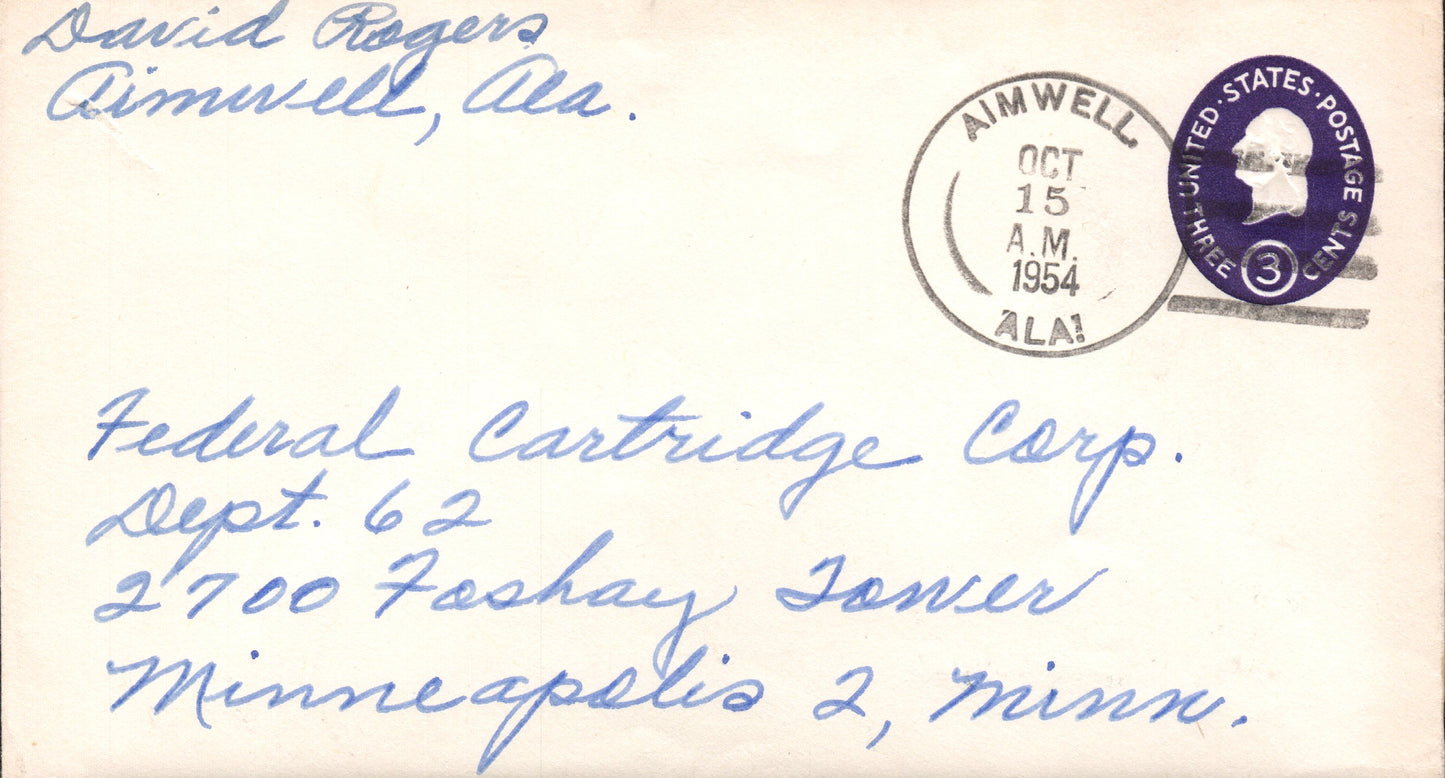 David Rogers
Aimwell, Ala.
AIMWELL
OCT
15
A.M.
1954
ALA!
UNITED·STATES·POSTAGE
THREE 3 CENTS
Federal Cartridge Corp.
Dept. 62
2700 Foshay Tower
Minneapolis 2, Minn.